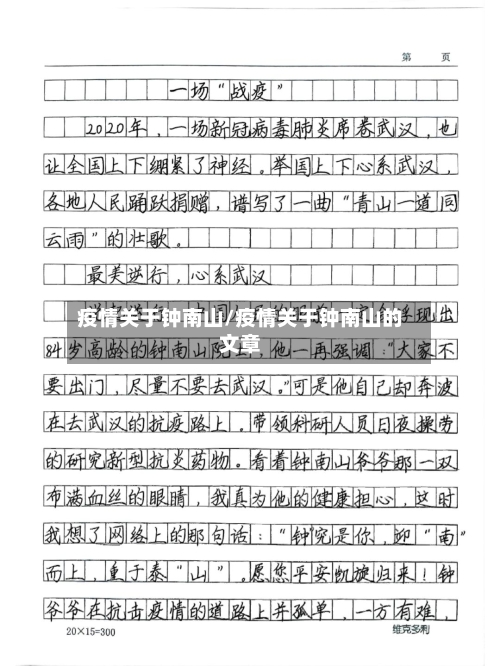 第 页
一场“战疫”
2020年，一场新冠病毒肺炎席卷武汉，也
让全国上下绷紧了神经。举国上下心系武汉，
各地人民踊跃捐赠，谱写了一曲“青山一道同
云雨”的壮歌。
最美逆行，心系武汉
疫情关于钟南山/疫情关于钟南山的
文章
浮现出
84岁高龄的钟南山院士，他一再强调：“大家不
要出门，尽量不要去武汉。”可是他自己却奔波
在去武汉的抗疫路上。带领科研人员日夜操劳
的研究新型抗炎药物。看着钟南山爷爷那一双
布满血丝的眼睛，我真为他的健康担心，这时
我想了网络上的那句话：“钟究是你，迎“南”
而上，重于泰“山”。愿您平安凯旋归来！钟
爷爷在抗击疫情的道路上并孤单，一方有难，
20×15=300
维克多利